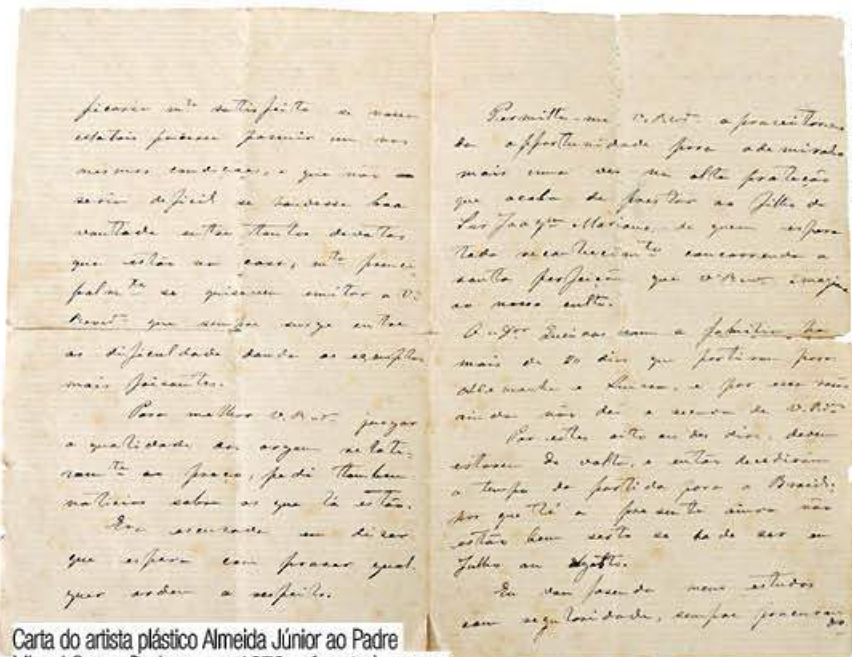 ficaria mto satisfeito se nossa
possuir um nas
mesmas condições, o que não
seria dificil se houvesse boa
vontade entre tantos devotos
que estão no caso, mte princi
palmte se quiserem imitar a V.
Revma que sempre surge entre
as dificuldade dando os exemplos
mais
Para melhor V. Revma julgar
a qualidade dos orgam relati
vamte ao preço, pedi tambem
noticias sobre os que lá estão.
Era escusado eu dizer
que espero com prazer qual
quer ordem a respeito.
Permitta-me V. Revma aproveitar-me
da opportunidade para admiral-o
mais uma vez na alta proteção
que acaba de prestar ao filho do
Snr Joaqm Mariano, de quem espero
todo reconhecimto concorrendo a
santa perfeição que V. Revma
ao nosso culto.
com a familia, ha
mais de 20 dias que partiram para
Allemanha e e por esse
ainda não dei a de V. Rma
Por estes oito ou dez dias, devem
estarem de volta, e então decidiram
o tempo da partida para o Brasil;
por que té o presente ainda não
estão bem serto se ha de ser em
Julho ou Agosto.
Eu vou fasendo meus estudos
com regularidade, sempre procurando
Carta do artista plástico Almeida Júnior ao Padre